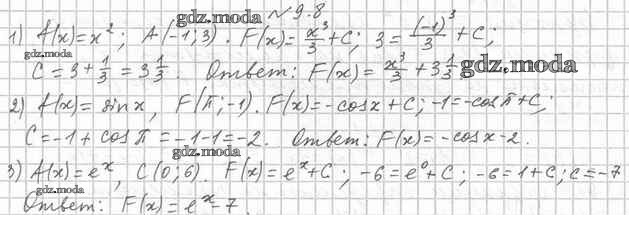 gdz.moda № 9.8
1) f(x)=x²; A(-1; 3). F(x)=x³/3+C; 3=(-1)³/3+C;
gdz.moda
C=3+1/3=3 1/3. Ответ: F(x)=x³/3+3 1/3 gdz.moda
2) f(x)=sin x, F(π;-1). F(x)=-cos x+C; -1=-cos π+C;
C=-1+cos π=-1-1=-2. Ответ: F(x)=-cos x-2.
gdz.moda
3) f(x)=eˣ, C(0;6). F(x)=eˣ+C; -6=e⁰+C; -6=1+C; C=-7
gdz.moda
Ответ: F(x)=eˣ-7.